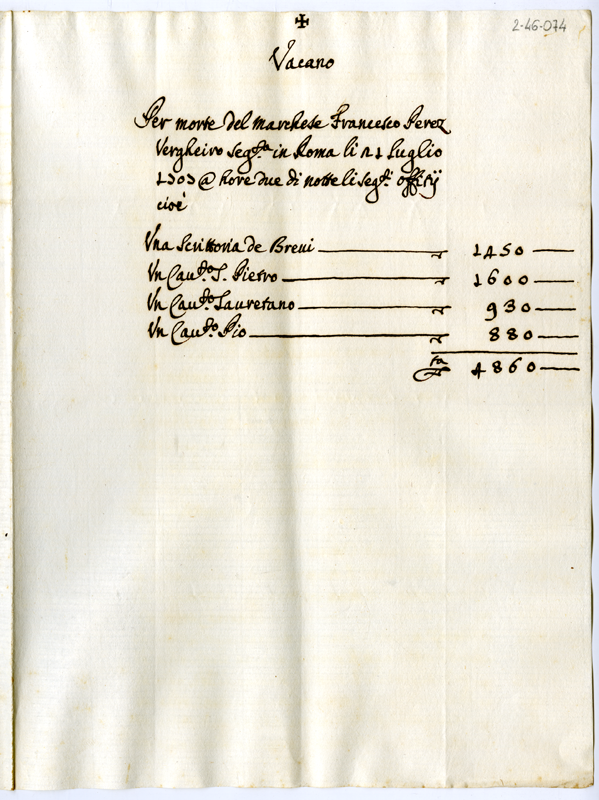 2-46-074
✠
Vacano
Per morte del marchese Francesco Perez
Vergheiro seg.ta in Roma li 21 luglio
1703 @ hore due di notte li seg.ti offitij
cioè
Una Scrittoria de Brevi — 1450 —
Un Cau.to S. Pietro — 1600 —
Un Cau.to Lauretano — 930 —
Un Cau.to Pio — 880 —
4860 —